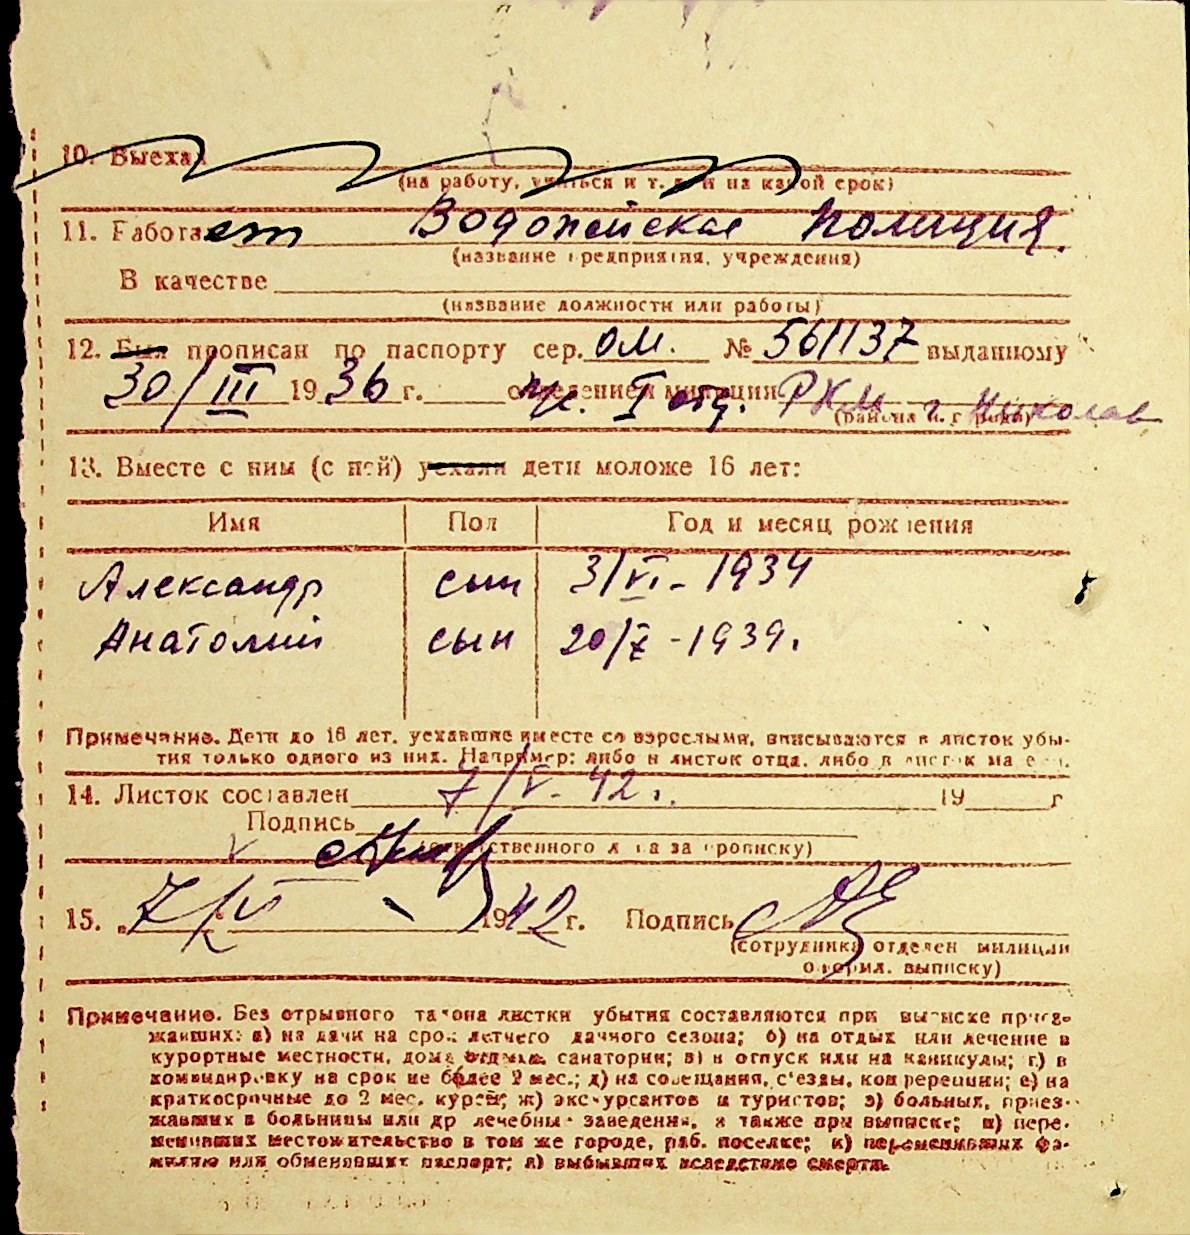 10. Выехал
(на работу, учиться и т. д. и на какой срок)
11. Работает Водопойская полиция.
(название предприятия, учреждения)
В качестве
(название должности или работы)
12. Был прописан по паспорту сер. ОМ. № 561137 выданному
30/III 1936 г. отделением милиции I отд. РКМ г. Николаев
(района и. г рода)
13. Вместе с ним (с ней) уехали дети моложе 16 лет:
Имя Пол Год и месяц рождения
Александр сын 3/VI - 1934
Анатолий сын 20/X - 1939.
Примечание. Дети до 16 лет, уехавшие вместе со взрослыми, вписываются в листок убы-
тия только одного из них. Например: либо в листок отца, либо в листок матери.
14. Листок составлен 7/V - 42 г. 19 г
Подпись
(ответственного лица за прописку)
15. 7/V 1942 г. Подпись
(сотрудника отделен милиции
оформил. выписку)
Примечание. Без отрывного талона листки убытия составляются при выписке приез-
жавших: а) на дачи на срок летнего дачного сезона; б) на отдых или лечение в
курортные местности, дома отдыха, санатории; в) в отпуск или на каникулы; г) в
командировку на срок не более 2 мес.; д) на совещания, с'езды, конференции; е) на
краткосрочные до 2 мес. курсы; ж) экскурсантов и туристов; з) больных, приез-
жавших в больницы или др лечебны заведения, а также при выписке; и) пере-
менивших местожительство в том же городе, раб. поселке; к) переменивших фа-
милию или обменявших паспорт; л) выбывших вследствие смерти.